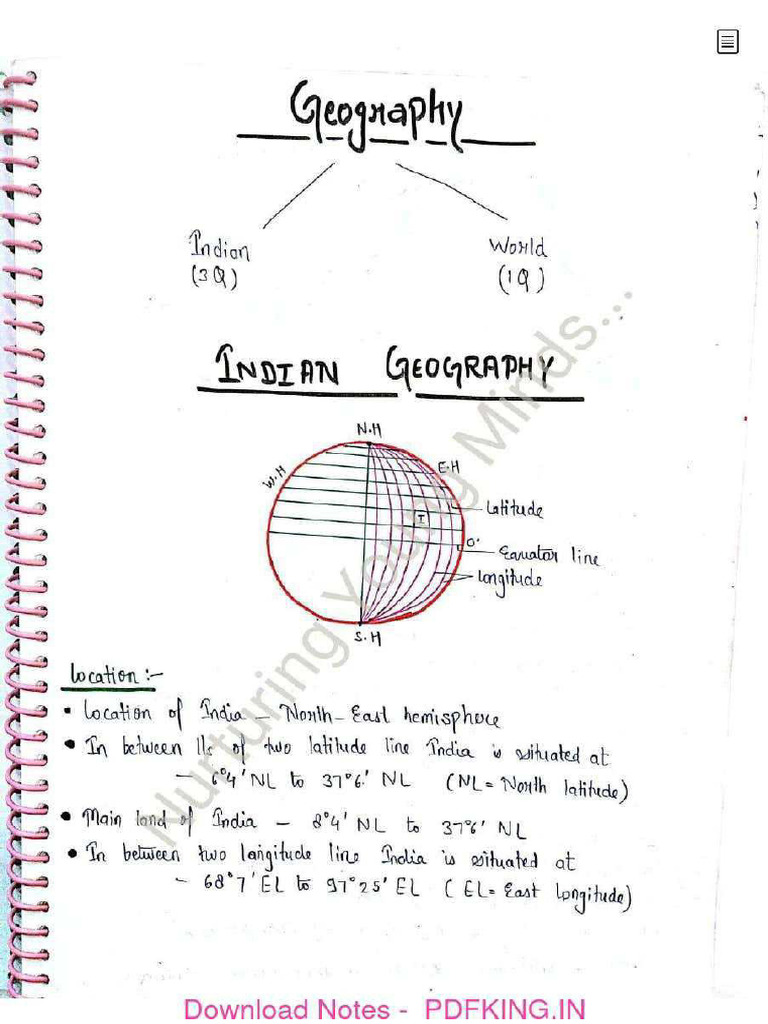 Geography
Indian
(3Q)
World
(1Q)
INDIAN GEOGRAPHY
N.H
W.H
E.H
Latitude
I
0°
Equator line
Longitude
S.H
Location :-
• Location of India – North-East hemisphere
• In between lls of two latitude line India is situated at
– 6°4' NL to 37°6' NL (NL = North latitude)
• Main land of India – 8°4' NL to 37°6' NL
• In between two longitude line India is situated at
– 68°7' EL to 97°25' EL (EL = East Longitude)
Nurturing Young Minds...
Download Notes - PDFKING.IN